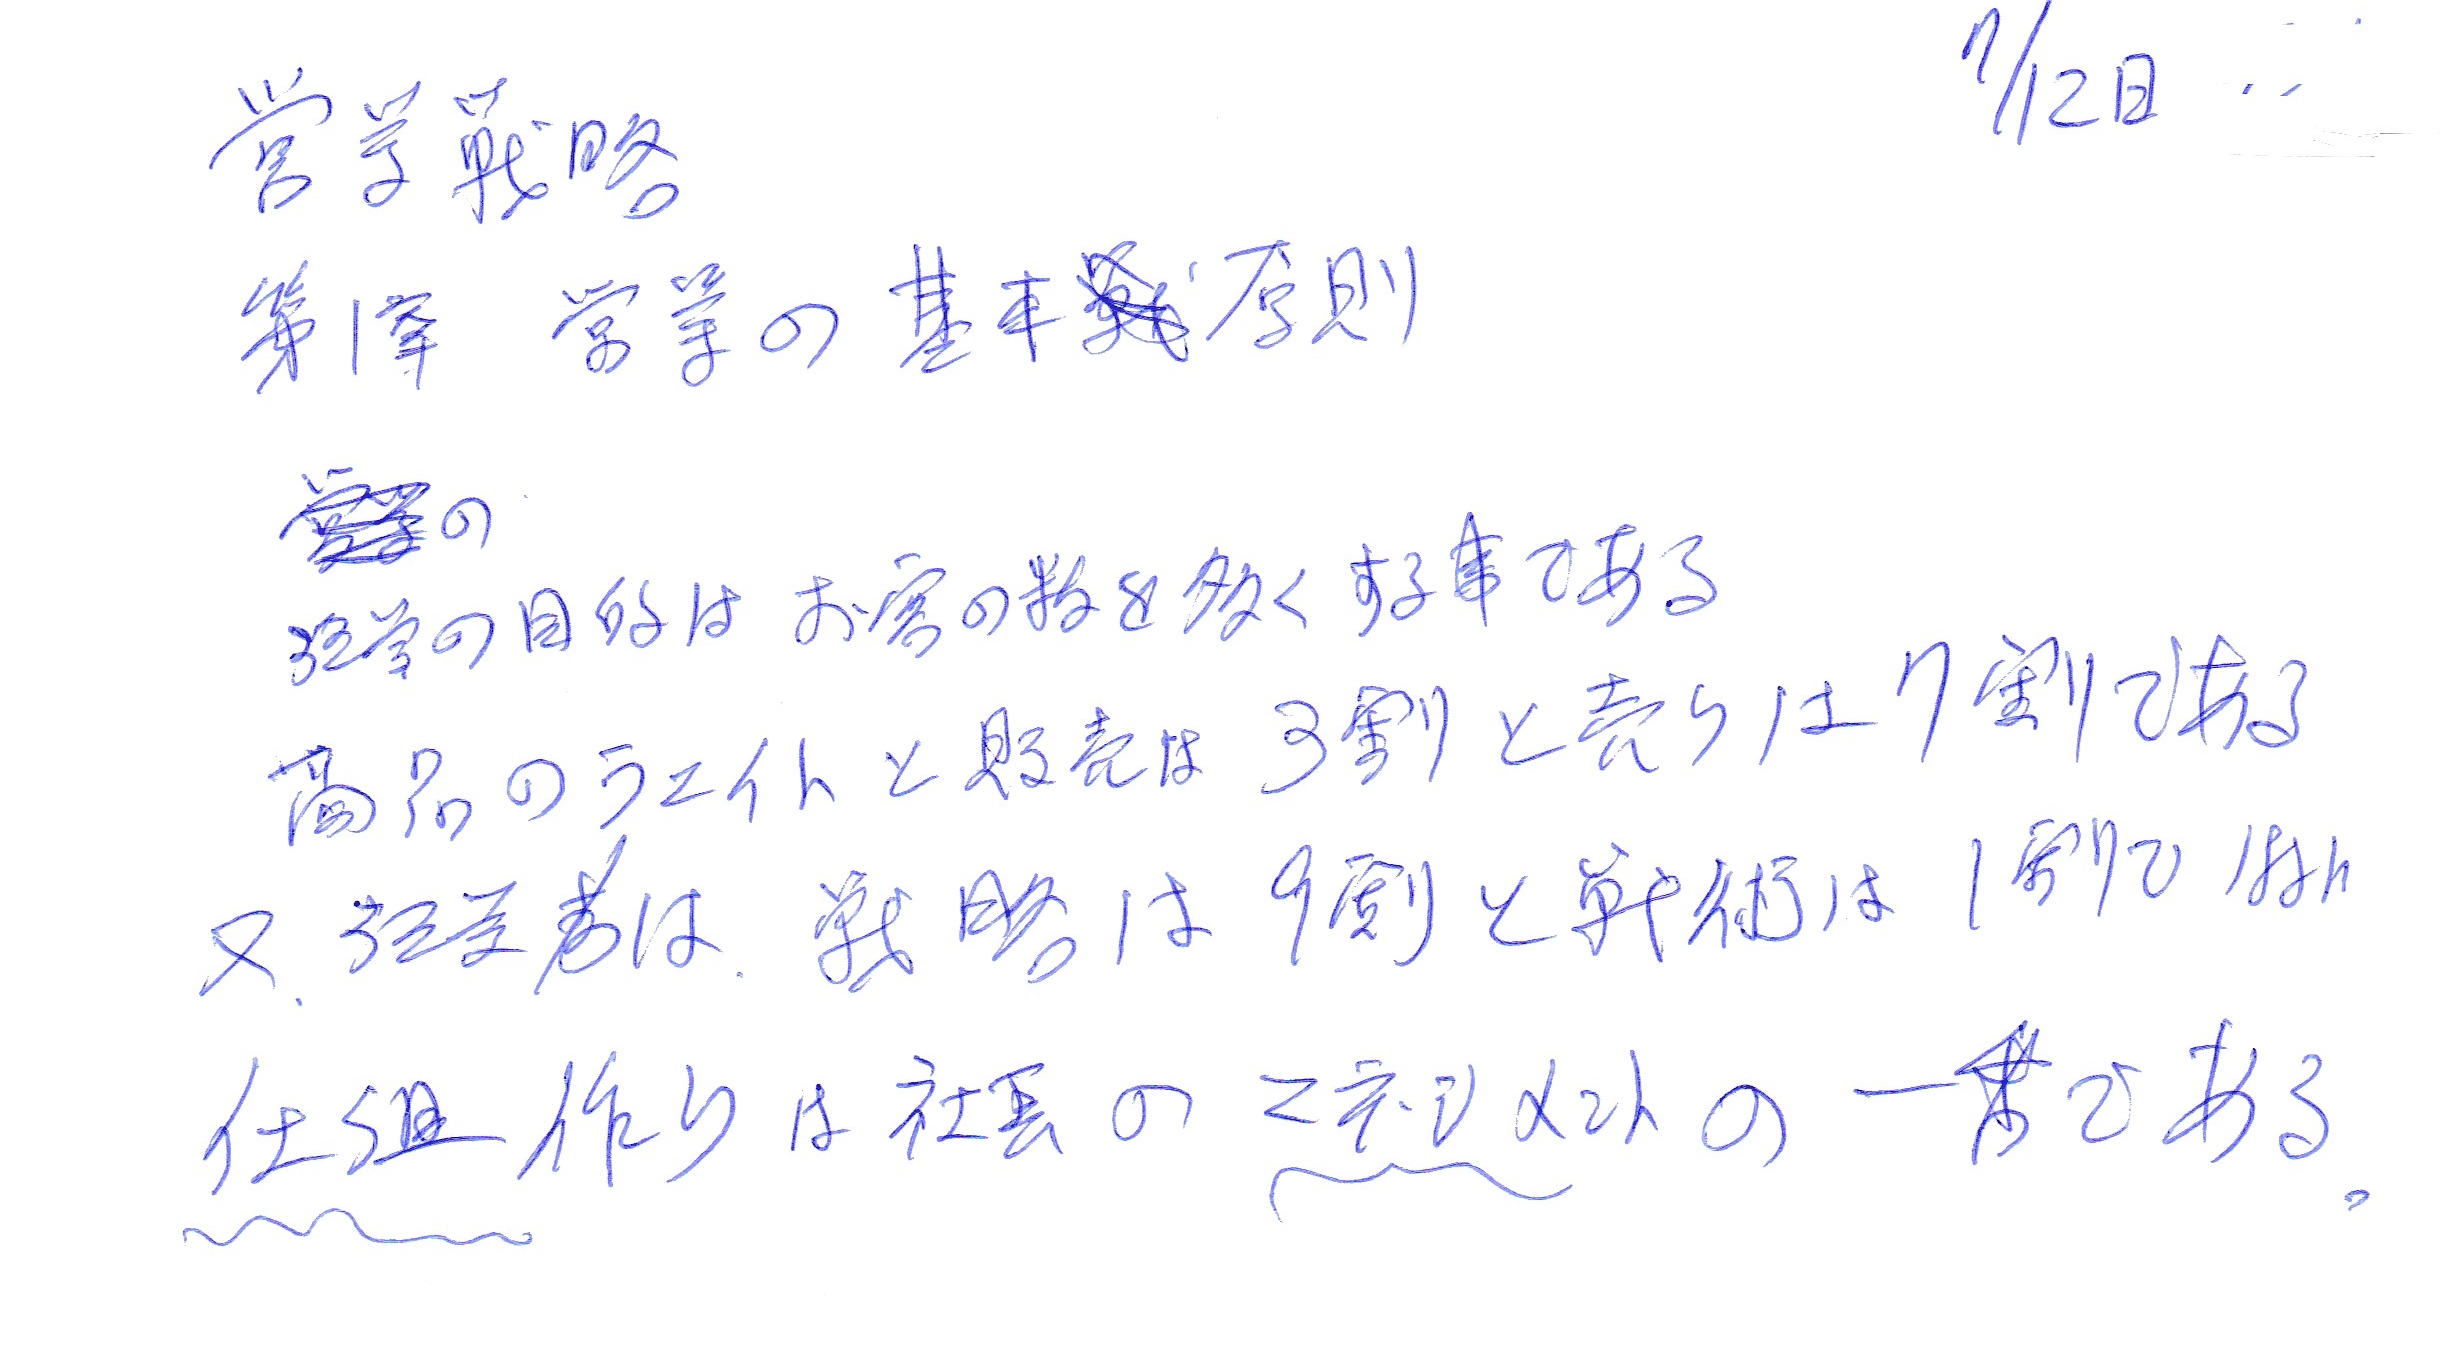 7/12日
営業戦略
第1章 営業の基本原則
の
経営の目的はお客の数を多くする事である
商品のウエイトと販売は3割と売りは7割である
又、経営者は、戦略は9割と戦術は1割で
仕組作りは社長のマネジメントの一番である。